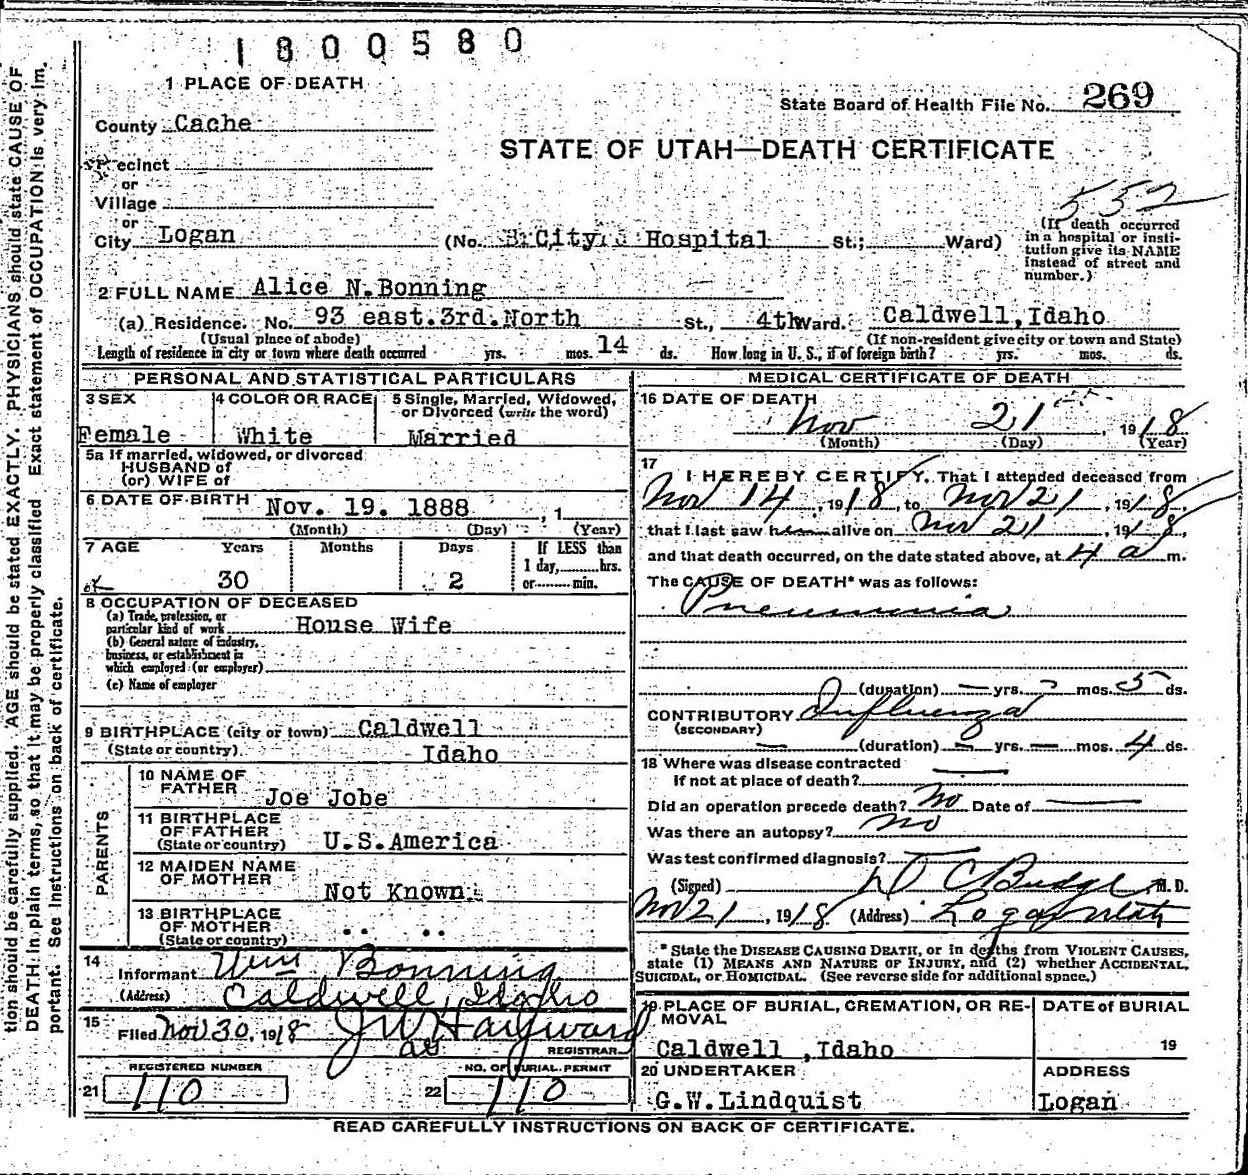 1800580
1 PLACE OF DEATH
State Board of Health File No. 269
County Cache
STATE OF UTAH—DEATH CERTIFICATE
Precinct
or
Village
or
552
City Logan (No. City Hospital St.; Ward)
(If death occurred in a hospital or insti-
tution give its NAME instead of street and number.)
2 FULL NAME Alice N. Bonning
(a) Residence. No. 93 east.3rd.North St., 4th Ward. Caldwell, Idaho
(Usual place of abode) (If non-resident give city or town and State)
Length of residence in city or town where death occurred yrs. mos. 14 ds. How long in U. S., if of foreign birth? yrs. mos. ds.
PERSONAL AND STATISTICAL PARTICULARS
3 SEX 4 COLOR OR RACE 5 Single, Married, Widowed,
or Divorced (write the word)
Female White Married
5a If married, widowed, or divorced
HUSBAND of
(or) WIFE of
6 DATE OF BIRTH Nov. 19. 1888 , 1
(Month) (Day) (Year)
7 AGE Years Months Days If LESS than
1 day, hrs.
30 2 or min.
8 OCCUPATION OF DECEASED
(a) Trade, profession, or
particular kind of work House Wife
(b) General nature of industry,
business, or establishment in
which employed (or employer)
(c) Name of employer
9 BIRTHPLACE (city or town) Caldwell
(State or country) Idaho
PARENTS
10 NAME OF
FATHER Joe Jobe
11 BIRTHPLACE
OF FATHER
(State or country) U.S.America
12 MAIDEN NAME
OF MOTHER Not Known.
13 BIRTHPLACE
OF MOTHER
(State or country) " "
14
Informant Wm Bonning
(Address) Caldwell, Idaho
15 Filed Nov 30, 1918 J W Hayward
REGISTRAR
REGISTERED NUMBER NO. OF BURIAL PERMIT
21 110 22 110
MEDICAL CERTIFICATE OF DEATH
16 DATE OF DEATH
Nov 21 , 1918
(Month) (Day) (Year)
17
I HEREBY CERTIFY, That I attended deceased from
Nov 14 , 1918, to Nov 21 , 1918,
that I last saw h alive on Nov 21 , 1918,
and that death occurred, on the date stated above, at 4 a m.
The CAUSE OF DEATH* was as follows:
Pneumonia
(duration) — yrs. — mos. 5 ds.
CONTRIBUTORY Influenza
(SECONDARY)
— (duration) — yrs. — mos. 4 ds.
18 Where was disease contracted
If not at place of death? —
Did an operation precede death? No Date of —
Was there an autopsy? no
Was test confirmed diagnosis? —
(Signed) D C Budge, M. D.
Nov 21 , 1918 (Address) Logan Utah
* State the DISEASE CAUSING DEATH, or in deaths from VIOLENT CAUSES,
state (1) MEANS AND NATURE OF INJURY, and (2) whether ACCIDENTAL,
SUICIDAL, or HOMICIDAL. (See reverse side for additional space.)
19 PLACE OF BURIAL, CREMATION, OR RE-
MOVAL
DATE of BURIAL
Caldwell ,Idaho 19
20 UNDERTAKER ADDRESS
G.W.Lindquist Logan
READ CAREFULLY INSTRUCTIONS ON BACK OF CERTIFICATE.
tion should be carefully supplied. AGE should be stated EXACTLY. PHYSICIANS should state CAUSE OF
DEATH in plain terms, so that it may be properly classified Exact statement of OCCUPATION is very im.
portant. See instructions on back of certificate.